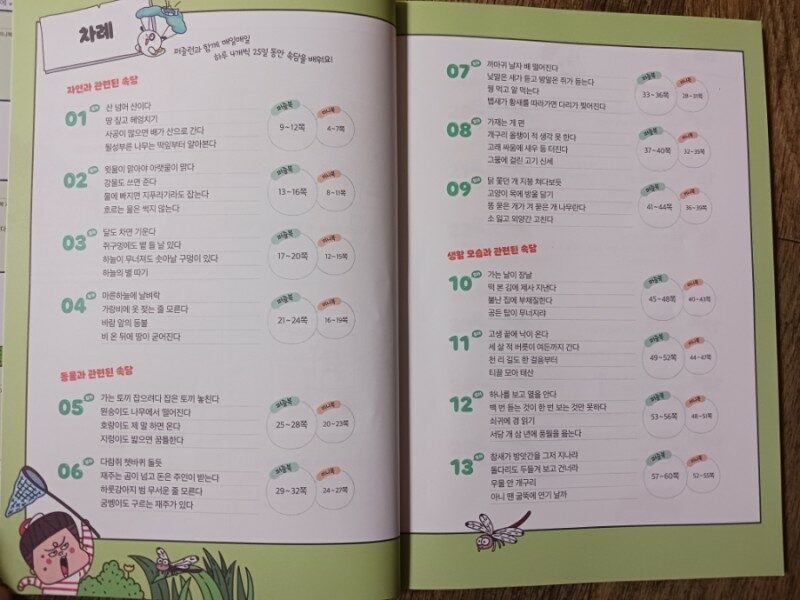 차례
퍼즐런과 함께 매일매일
하루 4개씩 25일 동안 속담을 배워요!
자연과 관련된 속담
01 일차
산 넘어 산이다
땅 짚고 헤엄치기
사공이 많으면 배가 산으로 간다
될성부른 나무는 떡잎부터 알아본다
퍼즐북 9~12쪽
미니북 4~7쪽
02 일차
윗물이 맑아야 아랫물이 맑다
강물도 쓰면 준다
물에 빠지면 지푸라기라도 잡는다
흐르는 물은 썩지 않는다
퍼즐북 13~16쪽
미니북 8~11쪽
03 일차
달도 차면 기운다
쥐구멍에도 볕 들 날 있다
하늘이 무너져도 솟아날 구멍이 있다
하늘의 별 따기
퍼즐북 17~20쪽
미니북 12~15쪽
04 일차
마른하늘에 날벼락
가랑비에 옷 젖는 줄 모른다
바람 앞의 등불
비 온 뒤에 땅이 굳어진다
퍼즐북 21~24쪽
미니북 16~19쪽
동물과 관련된 속담
05 일차
가는 토끼 잡으려다 잡은 토끼 놓친다
원숭이도 나무에서 떨어진다
호랑이도 제 말 하면 온다
지렁이도 밟으면 꿈틀한다
퍼즐북 25~28쪽
미니북 20~23쪽
06 일차
다람쥐 쳇바퀴 돌듯
재주는 곰이 넘고 돈은 주인이 받는다
하룻강아지 범 무서운 줄 모른다
굼벵이도 구르는 재주가 있다
퍼즐북 29~32쪽
미니북 24~27쪽
07 일차
까마귀 날자 배 떨어진다
낮말은 새가 듣고 밤말은 쥐가 듣는다
꿩 먹고 알 먹는다
뱁새가 황새를 따라가면 다리가 찢어진다
퍼즐북 33~36쪽
미니북 28~31쪽
08 일차
가재는 게 편
개구리 올챙이 적 생각 못 한다
고래 싸움에 새우 등 터진다
그물에 걸린 고기 신세
퍼즐북 37~40쪽
미니북 32~35쪽
09 일차
닭 쫓던 개 지붕 쳐다보듯
고양이 목에 방울 달기
똥 묻은 개가 겨 묻은 개 나무란다
소 잃고 외양간 고친다
퍼즐북 41~44쪽
미니북 36~39쪽
생활 모습과 관련된 속담
10 일차
가는 날이 장날
떡 본 김에 제사 지낸다
불난 집에 부채질한다
공든 탑이 무너지랴
퍼즐북 45~48쪽
미니북 40~43쪽
11 일차
고생 끝에 낙이 온다
세 살 적 버릇이 여든까지 간다
천 리 길도 한 걸음부터
티끌 모아 태산
퍼즐북 49~52쪽
미니북 44~47쪽
12 일차
하나를 보고 열을 안다
백 번 듣는 것이 한 번 보는 것만 못하다
쇠귀에 경 읽기
서당 개 삼 년에 풍월을 읊는다
퍼즐북 53~56쪽
미니북 48~51쪽
13 일차
참새가 방앗간을 그저 지나랴
돌다리도 두들겨 보고 건너라
우물 안 개구리
아니 땐 굴뚝에 연기 날까
퍼즐북 57~60쪽
미니북 52~55쪽